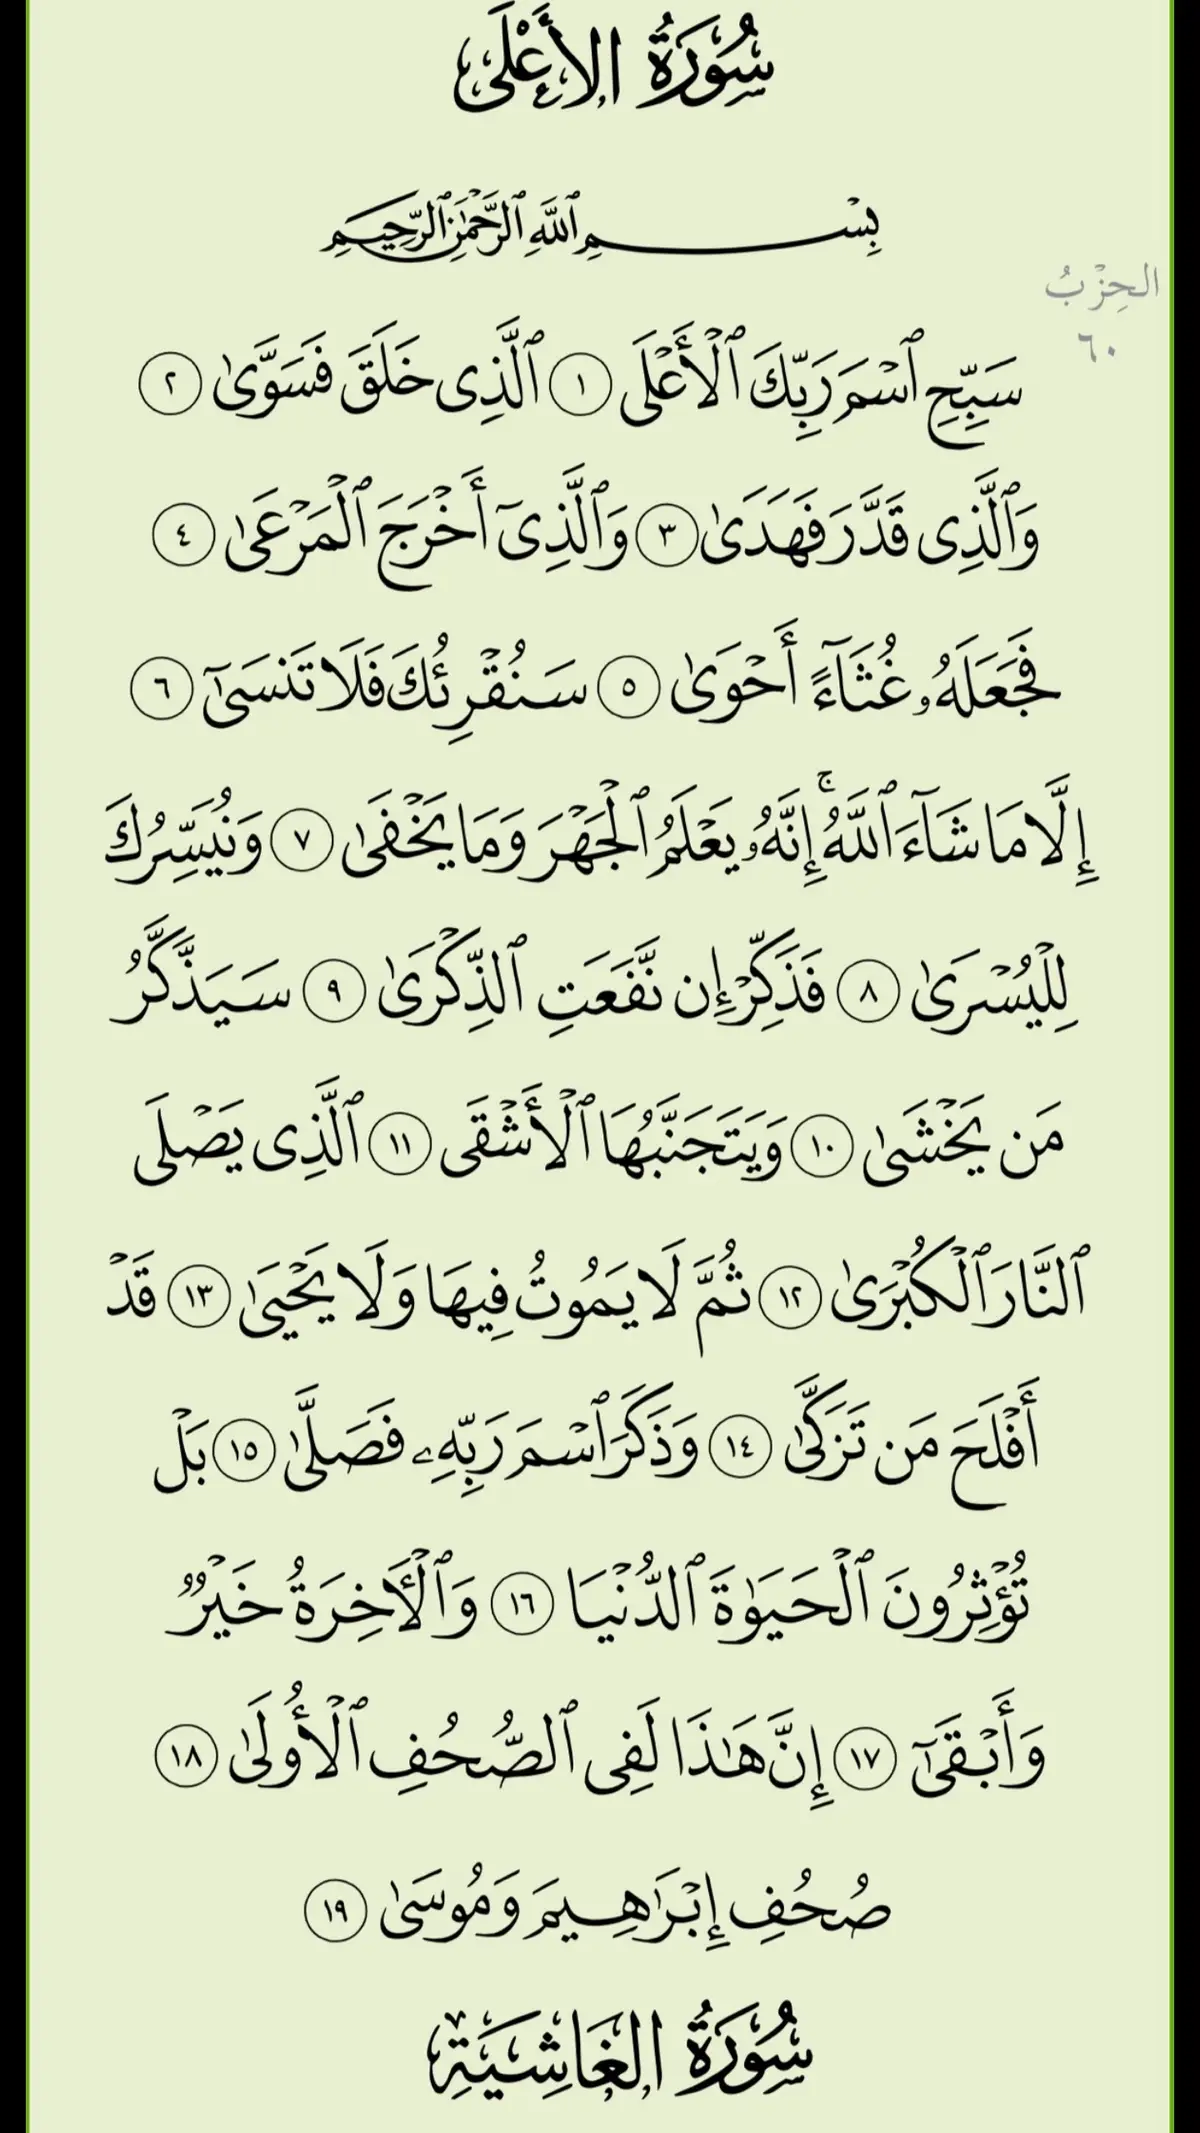 سُورَةُ الأَعْلَى
بِسْمِ ٱللَّهِ ٱلرَّحْمَٰنِ ٱلرَّحِيمِ
الحِزْبُ
٦٠
سَبِّحِ ٱسْمَ رَبِّكَ ٱلْأَعْلَى ١ ٱلَّذِى خَلَقَ فَسَوَّىٰ ٢
وَٱلَّذِى قَدَّرَ فَهَدَىٰ ٣ وَٱلَّذِىٓ أَخْرَجَ ٱلْمَرْعَىٰ ٤
فَجَعَلَهُۥ غُثَآءً أَحْوَىٰ ٥ سَنُقْرِئُكَ فَلَا تَنسَىٰٓ ٦
إِلَّا مَا شَآءَ ٱللَّهُ ۚ إِنَّهُۥ يَعْلَمُ ٱلْجَهْرَ وَمَا يَخْفَىٰ ٧ وَنُيَسِّرُكَ
لِلْيُسْرَىٰ ٨ فَذَكِّرْ إِن نَّفَعَتِ ٱلذِّكْرَىٰ ٩ سَيَذَّكَّرُ
مَن يَخْشَىٰ ١٠ وَيَتَجَنَّبُهَا ٱلْأَشْقَى ١١ ٱلَّذِى يَصْلَى
ٱلنَّارَ ٱلْكُبْرَىٰ ١٢ ثُمَّ لَا يَمُوتُ فِيهَا وَلَا يَحْيَىٰ ١٣ قَدْ
أَفْلَحَ مَن تَزَكَّىٰ ١٤ وَذَكَرَ ٱسْمَ رَبِّهِۦ فَصَلَّىٰ ١٥ بَلْ
تُؤْثِرُونَ ٱلْحَيَوٰةَ ٱلدُّنْيَا ١٦ وَٱلْـَٔاخِرَةُ خَيْرٌ
وَأَبْقَىٰٓ ١٧ إِنَّ هَٰذَا لَفِى ٱلصُّحُفِ ٱلْأُولَىٰ ١٨
صُحُفِ إِبْرَٰهِيمَ وَمُوسَىٰ ١٩
سُورَةُ الغَاشِيَةِ